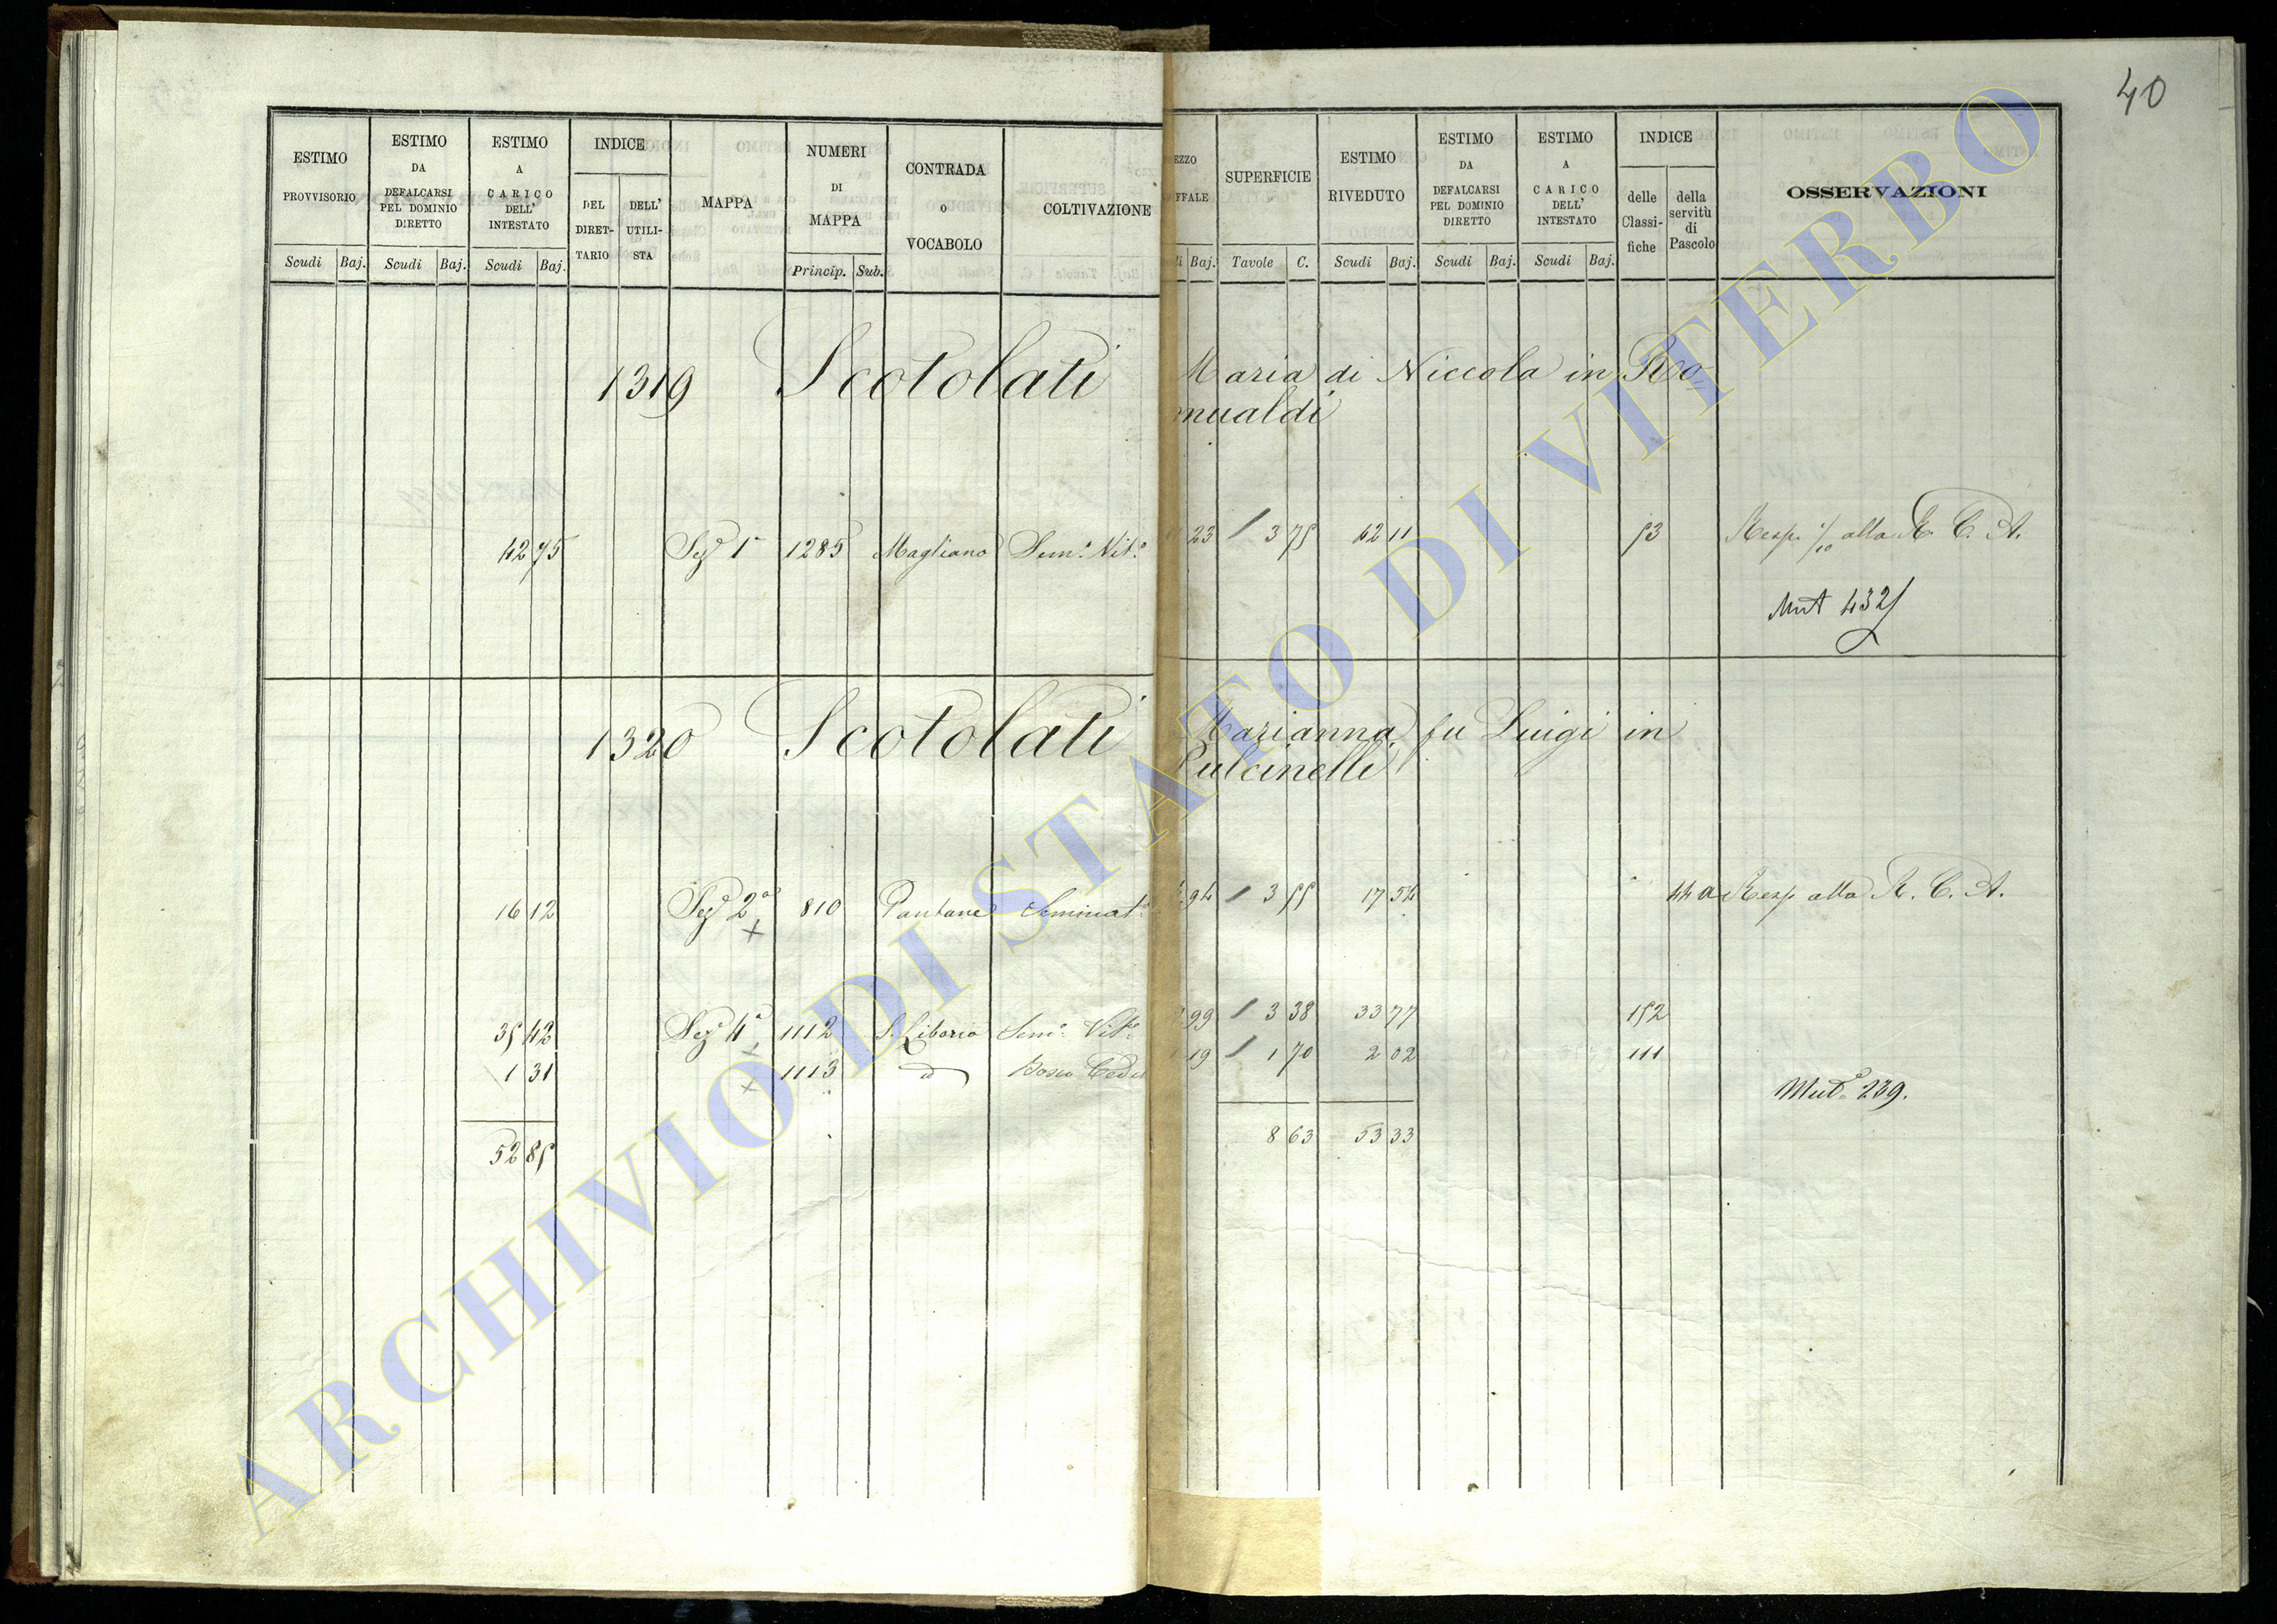 40
ESTIMO PROVVISORIO
Scudi Baj.
ESTIMO DA DEFALCARSI PEL DOMINIO DIRETTO
Scudi Baj.
ESTIMO A CARICO DELL' INTESTATO
Scudi Baj.
INDICE
DEL DIRET-TARIO
DELL' UTILI-STA
MAPPA
NUMERI DI MAPPA
Princip. Sub.
CONTRADA o VOCABOLO
COLTIVAZIONE
EZZO
FFALE
Baj.
SUPERFICIE
Tavole C.
ESTIMO RIVEDUTO
Scudi Baj.
ESTIMO DA DEFALCARSI PEL DOMINIO DIRETTO
Scudi Baj.
ESTIMO A CARICO DELL' INTESTATO
Scudi Baj.
INDICE
delle Classi-fiche
della servitù di Pascolo
OSSERVAZIONI
1319 Scotolati Maria di Niccola in Ro
mualdi
42 75 Sez 1a 1285 Magliano Sem.o Vit.o 23 3 75 42 11 53 Resp. 1/10 alla R. C. A.
Mut 432
1320 Scotolati Marianna fu Luigi in
Pulcinelli
16 12 Sez 2a 810 Pantane Seminat.o 94 3 55 17 54 44 a Resp alla R. C. A.
35 42 Sez 4a 1112 S. Liborio Sem.o Vit.o 99 3 38 33 77 152
1 31 1113 id Bosco Ced 19 1 70 2 02 111
Mut.e 239.
52 85 8 63 53 33
ARCHIVIO DI STATO DI VITERBO